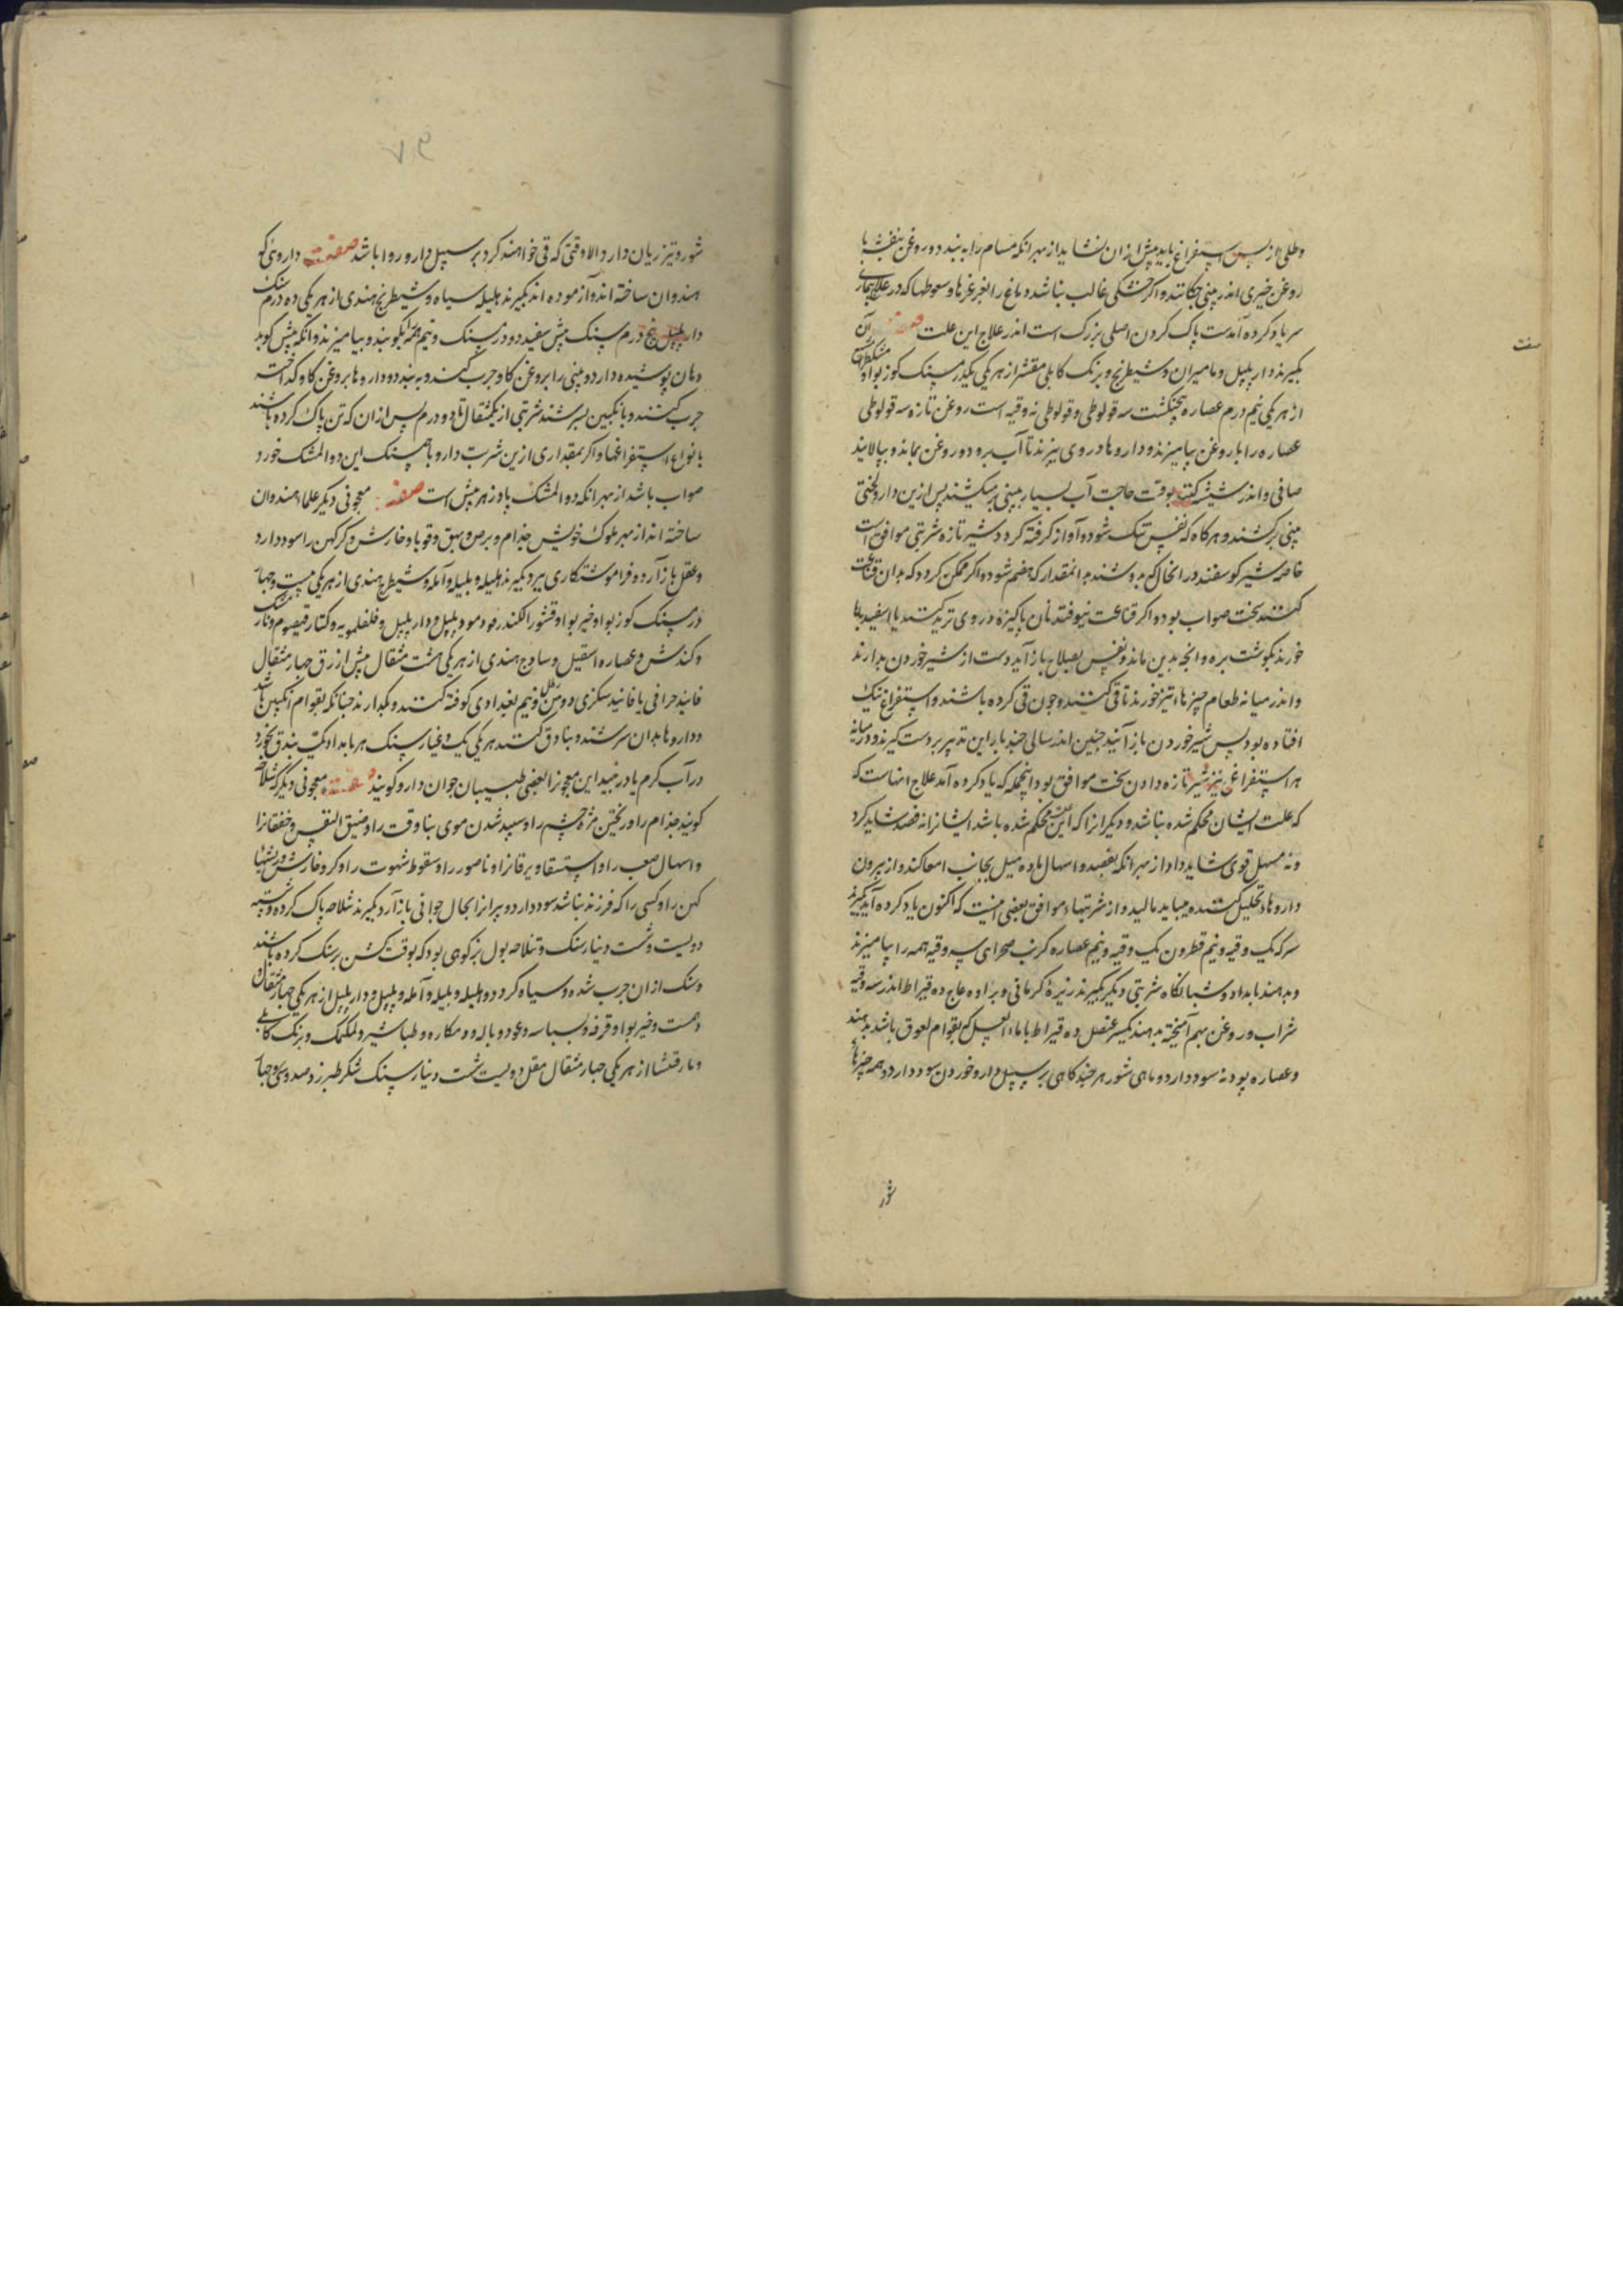 وطلی از پس استفراغ باید پیش از آن نشاید از بهر آنکه مسام را به بندد و روغن بنفشه یا
روغن خیری اندر بینی چکانند و اگر خشکی غالب نباشد دماغ را بغرغرها و سعوطها که در علاج بیماری
سر یاد کرده آمدست پاک کردن اصلی بزرگ است اندر علاج این علت صفت آن
بگیرند دار پلپل و مامیران و شیطرج و برنگ کابلی مقشر از هر یکی یکدرم سنگ کوز بوا و
از هر یکی نیم درم عصاره پنجنگشت سه قولوطی و قولوطی نه وقیه است روغن تازه سه قولوطی
عصاره را با روغن بیامیزند و داروها در وی بپزند تا آب برود و روغن بماند و بپالایند
صافی و اندر شیشه کنند بوقت حاجت آب بسیار ببینی بر میکشند پس ازین دارو لختی
ببینی برکشند و هرگاه که نفس تنگ شود و آواز گرفته گردد شیر تازه شربتی موافق است
خاصه شیر گوسفند در آنحال که بدوشند بدانمقدار که هضم شود و اگر ممکن گردد که بدان قناعت
کنند سخت صواب بود و اگر قناعت نیوفتد نان پاکیزه در وی ترید کنند یا اسفیدبا
خورند بگوشت بره و آنچه بدین ماند و نفس بصلاح باز آید دست از شیر خوردن بدارند
و اندر میانه طعام چیزهاء تیز خورند تا قی کنند و چون قی کرده باشند و استفراغ نیک
افتاده بود پس شیر خوردن باز آیند چنین اندر سالی چند بار این تدبیر بر دست گیرند و در میانه
هر استفراغی نیز شیر تازه دادن سخت موافق بود اینجمله که یاد کرده آمد علاج آنهاست که
که علت ایشان محکم شده نباشد و دیگر آنرا که این محکم شده باشد ایشانرا نه فصد شاید کرد
و نه مسهل قوی شاید داد از بهر آنکه بفصد و اسهال ماده میل بجانب امعا کند و از بیرون
داروهاء تحلیل کننده میباید مالید و از شربتهاء موافق بعضی اینست که اکنون یاد کرده آید بگیرند
سرکه یک وقیه و نیم قطرون یک وقیه و نیم عصاره کرنب صحرای سه وقیه همه را بیامیزند
و بدهند بامداد و شبانگاه شربتی دیگر بگیرند زیره کرمانی و براده عاج ده قیراط اندر سه وقیه
شراب و روغن بهم آمیخته بدهند بگیر عنصل ده قیراط با ماء العسل که بقوام لعوق باشد بدهند
و عصاره پودنه سود دارد و ماهی شور هر چند گاهی بر سبیل دارو خوردن سود دارد و همه چیزهاء
شور
صفت
شور و تیز زیان دارد الا وقتی که قی خواهند کرد بر سبیل دارو روا باشد صفت داروئی که
هندوان ساخته اند و آزموده اند بگیرند هلیله سیاه و شیطرج هندی از هر یکی ده درم سنگ
دار پلپل پنج درم سنگ بیش سفید دو درم سنگ و نیم همه بکوبند و بیامیزند و آنکه بیش کوبد
دهان پوشیده دارد و بینی را بروغن گاو چرب کنند و به بندد و داروها بروغن گاو گداخته
چرب کنند و بانگبین بسرشند شربتی از یکمثقال تا دو درم پس از آن که تن پاک کرده باشند
بانواع استفراغها و اگر بمقداری ازین شربت دارو با هم سنگ این دواء المشک خورد
صواب باشد از بهر آنکه دواء المشک پادزهر بیش است صفت معجونی دیگر علماء هندوان
ساخته اند از بهر ملوک خویش جذام و برص و بهق و قوبا و خارش و گر کهن را سود دارد
و عقل باز آرد و فراموشتکاری ببرد بگیرند هلیله و بلیله و آمله و شیطرج هندی از هر یکی بیست و چهار
درم سنگ کوز بوا و خیر بوا و قشور الکندر و مو و پلپل و دار پلپل و فلفلمویه و
و کندش و عصاره اسقیل و ساذج هندی از هر یکی هشت مثقال بیش ازرق چهار مثقال
فانیذ حرافی یا فانیذ سکزی دو من و نیم بغدادی کوفته کنند و بگدازند چنانکه بقوام انگبین باشد
و داروها بدان سرشند و بنادق کنند هر یکی یک دینار سنگ هر بامداد یک بندق بخورد
در آب گرم یا در نبید این معجونرا بعضی طبیبان جوان دارو گویند صفت معجونی دیگر که شلاحه
گویند جذام را و ریختن مژه چشم را و سپید شدن موی بناوقت را و ضیق النفس و خفقانرا
و اسهال صعب را و استسقا و یرقانرا و ناصور را و سقوط شهوت را و گر و خارش و ریشها
کهن را و کسی را که فرزند نباشد سود دارد و پیرانرا بحال جوانی باز آرد بگیرند شلاحه پاک کرده و شسته
دویست و شست دینار سنگ و شلاحه بول بز کوهی بود که بوقت گشن بر سنگ کرده باشند
و سنگ از آن چرب شده و سیاه گردد و هلیله و بلیله و آمله و پلپل و دار پلپل از هر یکی چهار مثقال
و خیر بوا و قرفه و بسباسه و عود و و طباشیر و و برنگ کابلی
و مارقشیشا از هر یکی چهار مثقال مقل دویست شست دینار سنگ شکر طبرزد صد و سی و چهار